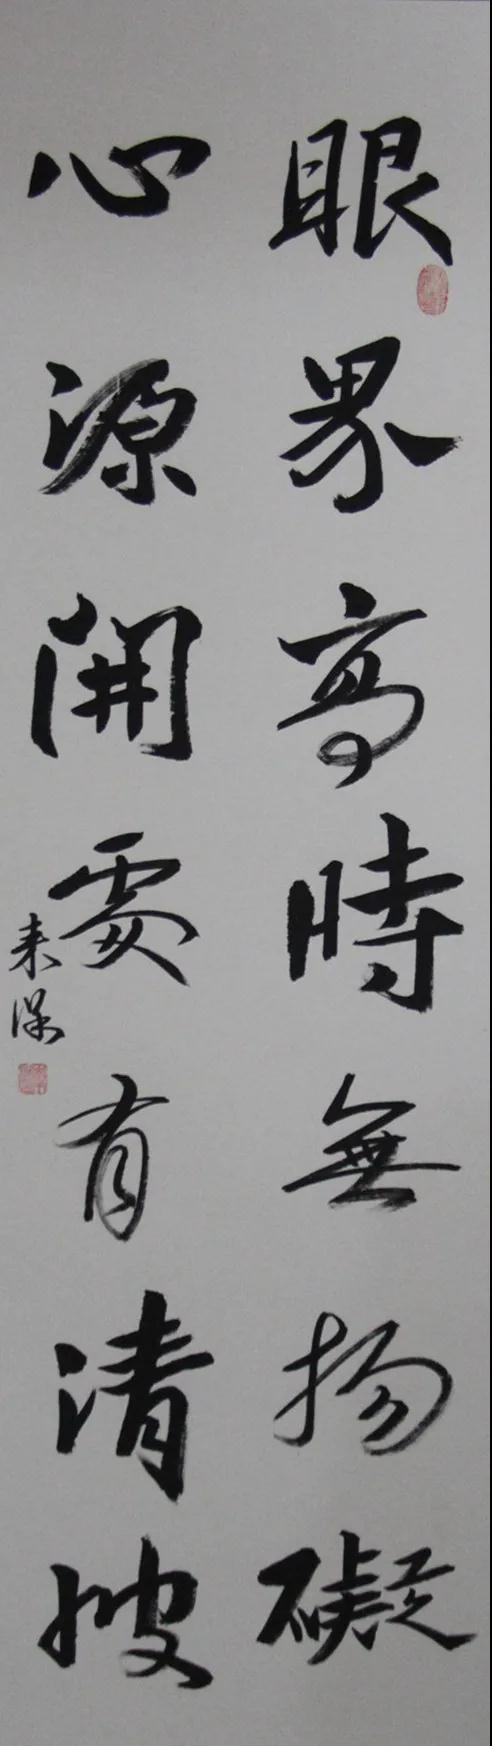 眼界高時無物礙
心源開處有清波
来